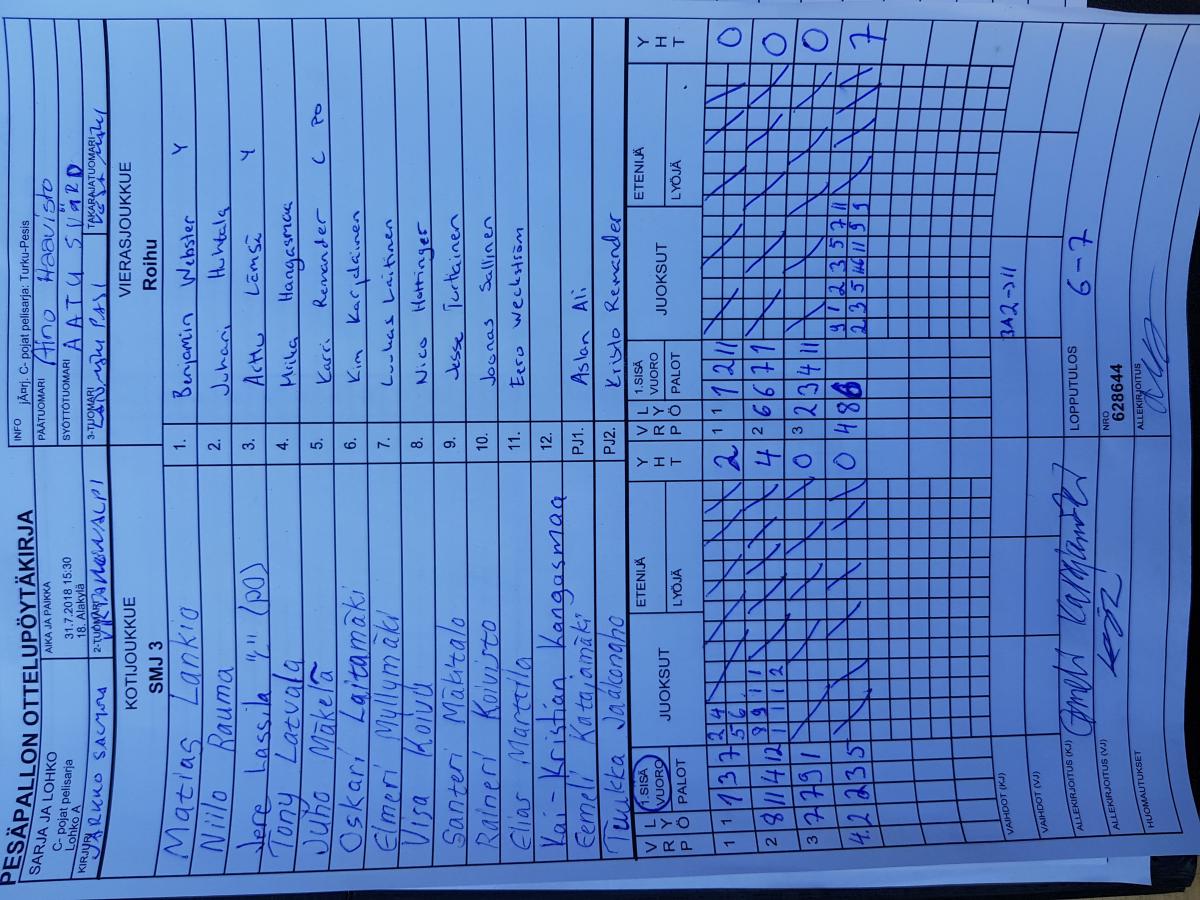 PESÄPALLON OTTELUPÖYTÄKIRJA
SARJA JA LOHKO
C- pojat pelisarja
Lohko A
AIKA JA PAIKKA
31.7.2018 15:30
18. Alakylä
INFO jÄ¤rj. C- pojat pelisarja: Turku-Pesis
PÄÄTUOMARI Aino Haavisto
SYÖTTÖTUOMARI AATU SVÄRD
KIRJURI
2-TUOMARI
3-TUOMARI
TAKARAJATUOMARI
KOTIJOUKKUE
SMJ 3
VIERASJOUKKUE
Roihu
Matias Lankio 1. Benjamin Webster Y
Niilo Rauma 2. Juhani Huhtala
Vere Lassila "L" (PO) 3. Arttu Lämsä Y
Tony Latvala 4. Miika Hangasmaa
Juho Mäkelä 5. Karri Remander C PO
Oskari Laitamäki 6. Kim Karjalainen
Elmeri Myllymäki 7. Luukas Laitinen
Visa Koivu 8. Nico Hottinger
Santeri Mäkitalo 9. Jesse Turtiainen
Raineri Koivisto 10. Joonas Sallinen
Elias Marttila 11. Eero Weckström
Kai-Kristian Kangasmaa 12.
Eemeli Katajamäki PJ1. Aslan Ali
Tuukka Jaakonaho PJ2. Kristo Remander
V R P L Y Ö 1.SISÄ VUORO PALOT JUOKSUT ETENIJÄ LYÖJÄ Y H T V R P L Y Ö 1.SISÄ VUORO PALOT JUOKSUT ETENIJÄ LYÖJÄ Y H T
1 1 1 3 7 2 4 2 1 1 1 2 11 0
5 6
2 8 11 4 12 9 9 11 1 4 2 6 6 7 1 0
1 1 1 2
3 7 2 7 9 1 0 3 2 2 3 4 11 0
4 2 2 3 5 0 4 8 9 1 2 3 5 7 11 7
2 3 5 11 9 9
VAIHDOT (KJ) 3A2->11
VAIHDOT (VJ)
ALLEKIRJOITUS (KJ)
LOPPUTULOS 6-7
ALLEKIRJOITUS (VJ)
NRO
628644
HUOMAUTUKSET
ALLEKIRJOITUS